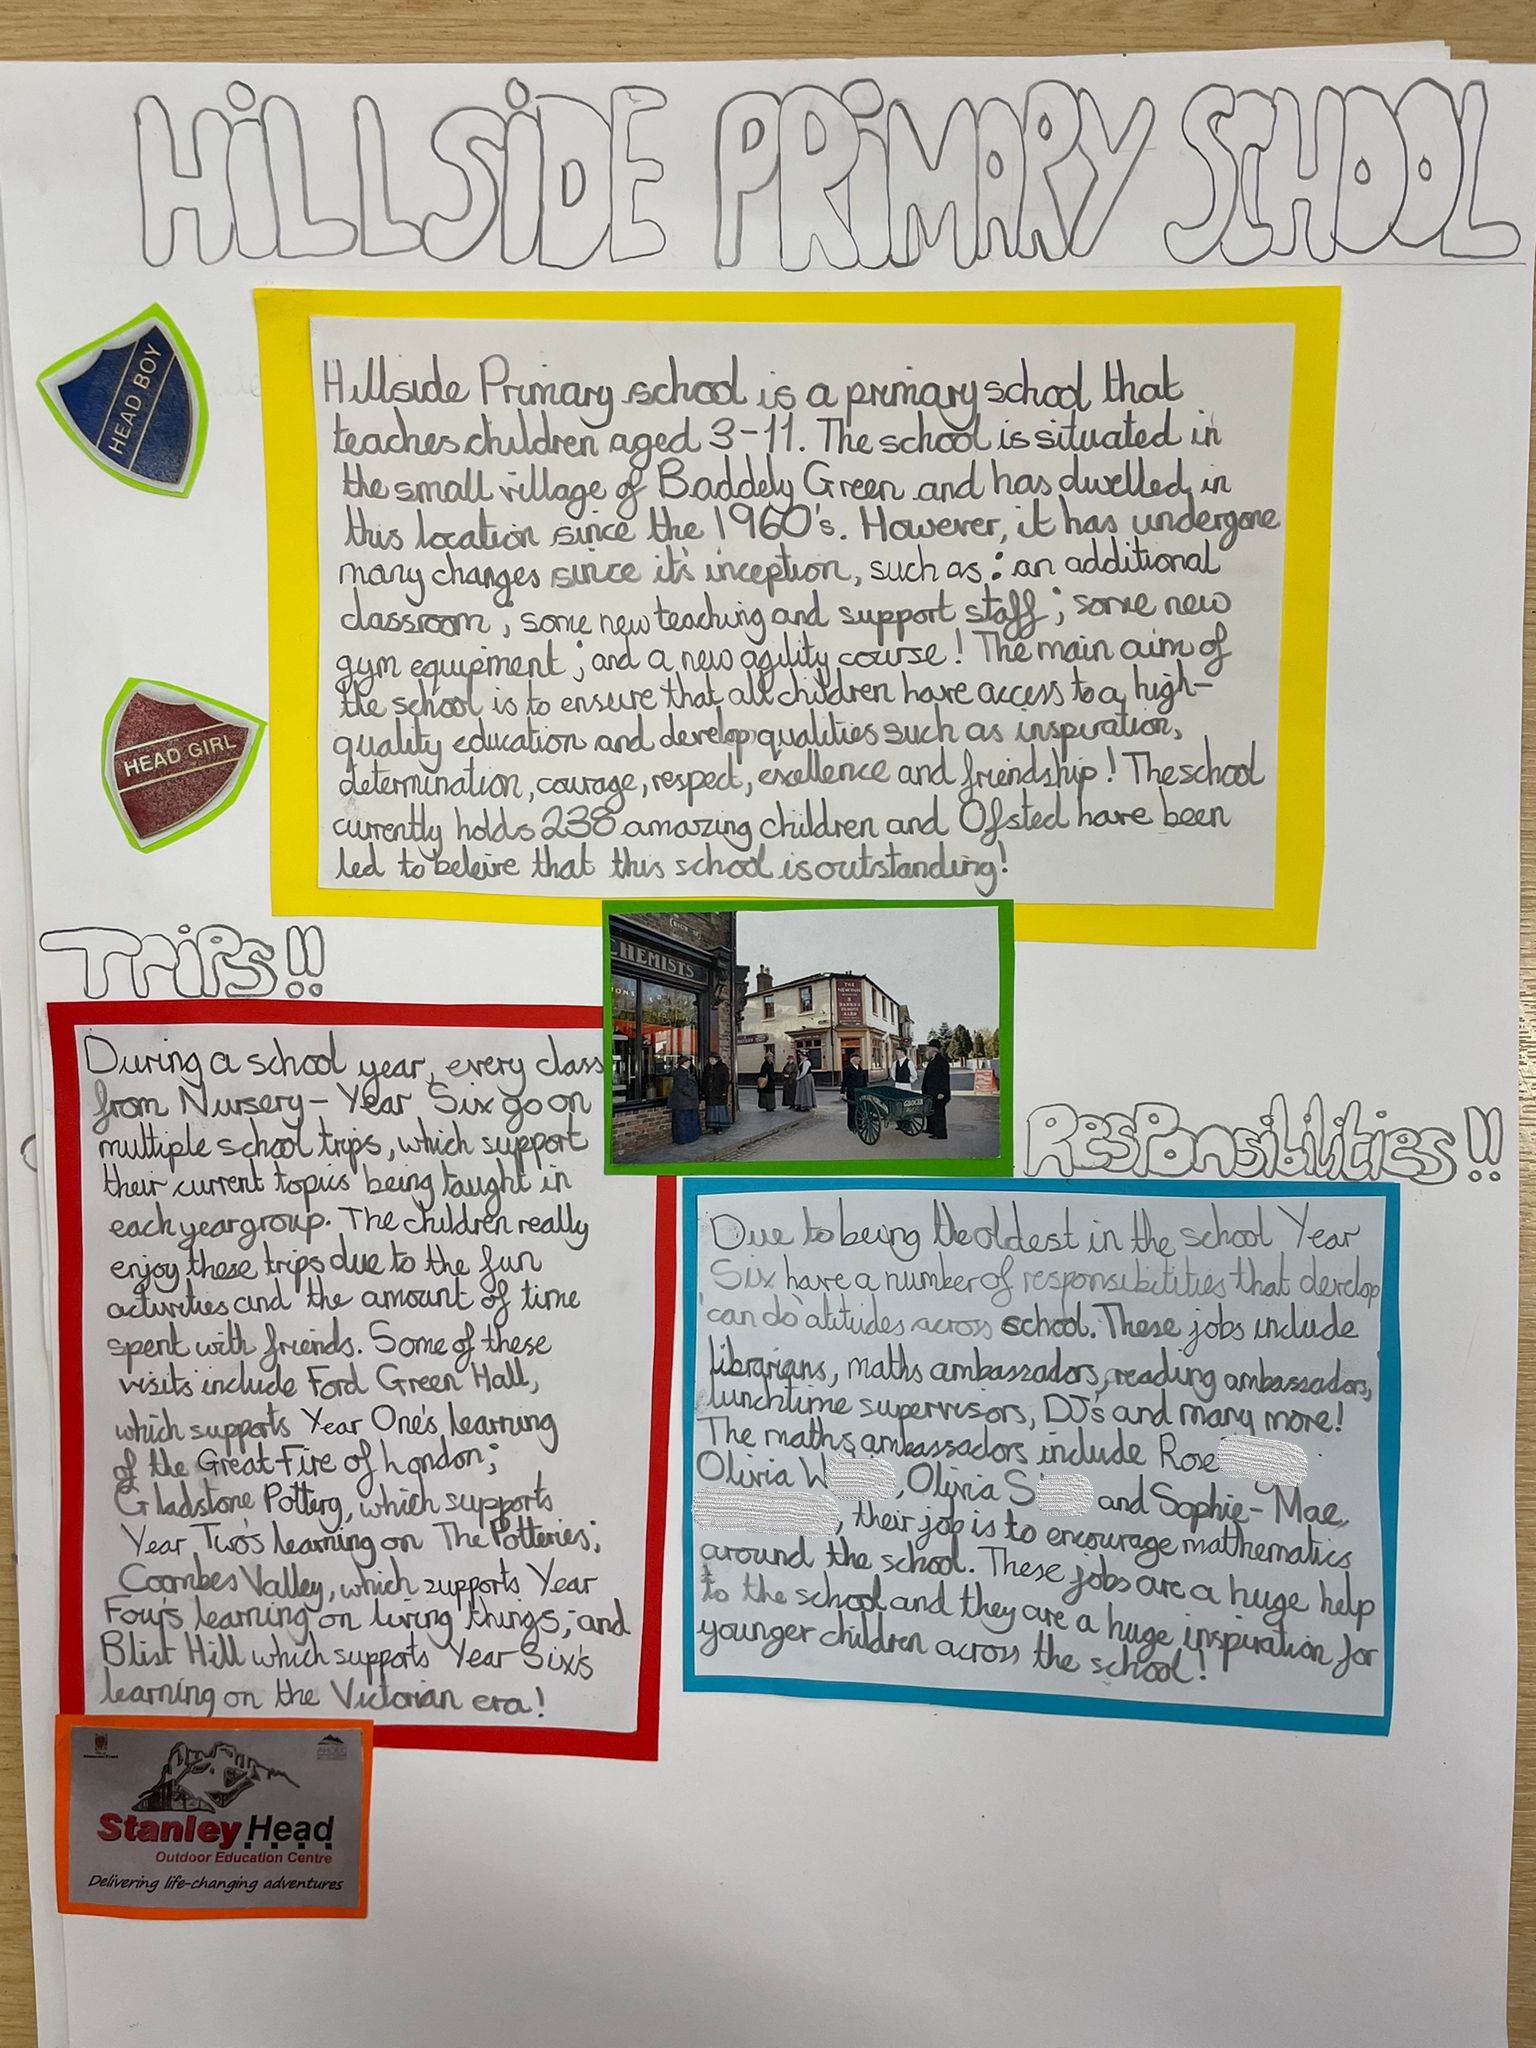 HiLLSiDE PRiMARY SCHOOL
HEAD BOY
HEAD GIRL
Hillside Primary school is a primary school that
teaches children aged 3-11. The school is situated in
the small village of Baddely Green and has dwelled in
this location since the 1960's. However, it has undergone
many changes since it's inception, such as: an additional
classroom; some new teaching and support staff; some new
gym equipment; and a new agility course! The main aim of
the school is to ensure that all children have access to a high-
quality education and develop qualities such as inspiration,
determination, courage, respect, exellence and friendship! The school
currently holds 238 amazing children and Ofsted have been
led to beleive that this school is outstanding!
TriPs!!
During a school year, every class
from Nursery- Year Six go on
multiple school trips, which support
their current topics being taught in
each year group. The children really
enjoy these trips due to the fun
activities and the amount of time
spent with friends. Some of these
visits include Ford Green Hall,
which supports Year One's learning
of the Great Fire of London;
Gladstone Pottery, which supports
Year Two's learning on The Potteries;
Coombes Valley, which supports Year
Four's learning on living things; and
Blist Hill which supports Year Six's
learning on the Victorian era!
CHEMISTS
THE NEW INN
GROCER
ResPonsibilities!!
Due to being the oldest in the school Year
Six have a number of responsibitities that develop
'can do' atitudes across school. These jobs include
librarians, maths ambassadors, reading ambassadors,
lunchtime supervisors, DJ's and many more!
The maths ambassadors include Rose
Olivia W , Olivia S and Sophie-Mae
, their job is to encourage mathematics
around the school. These jobs are a huge help
to the school and they are a huge inspiration for
younger children across the school!
Stanley Head
Outdoor Education Centre
Delivering life-changing adventures